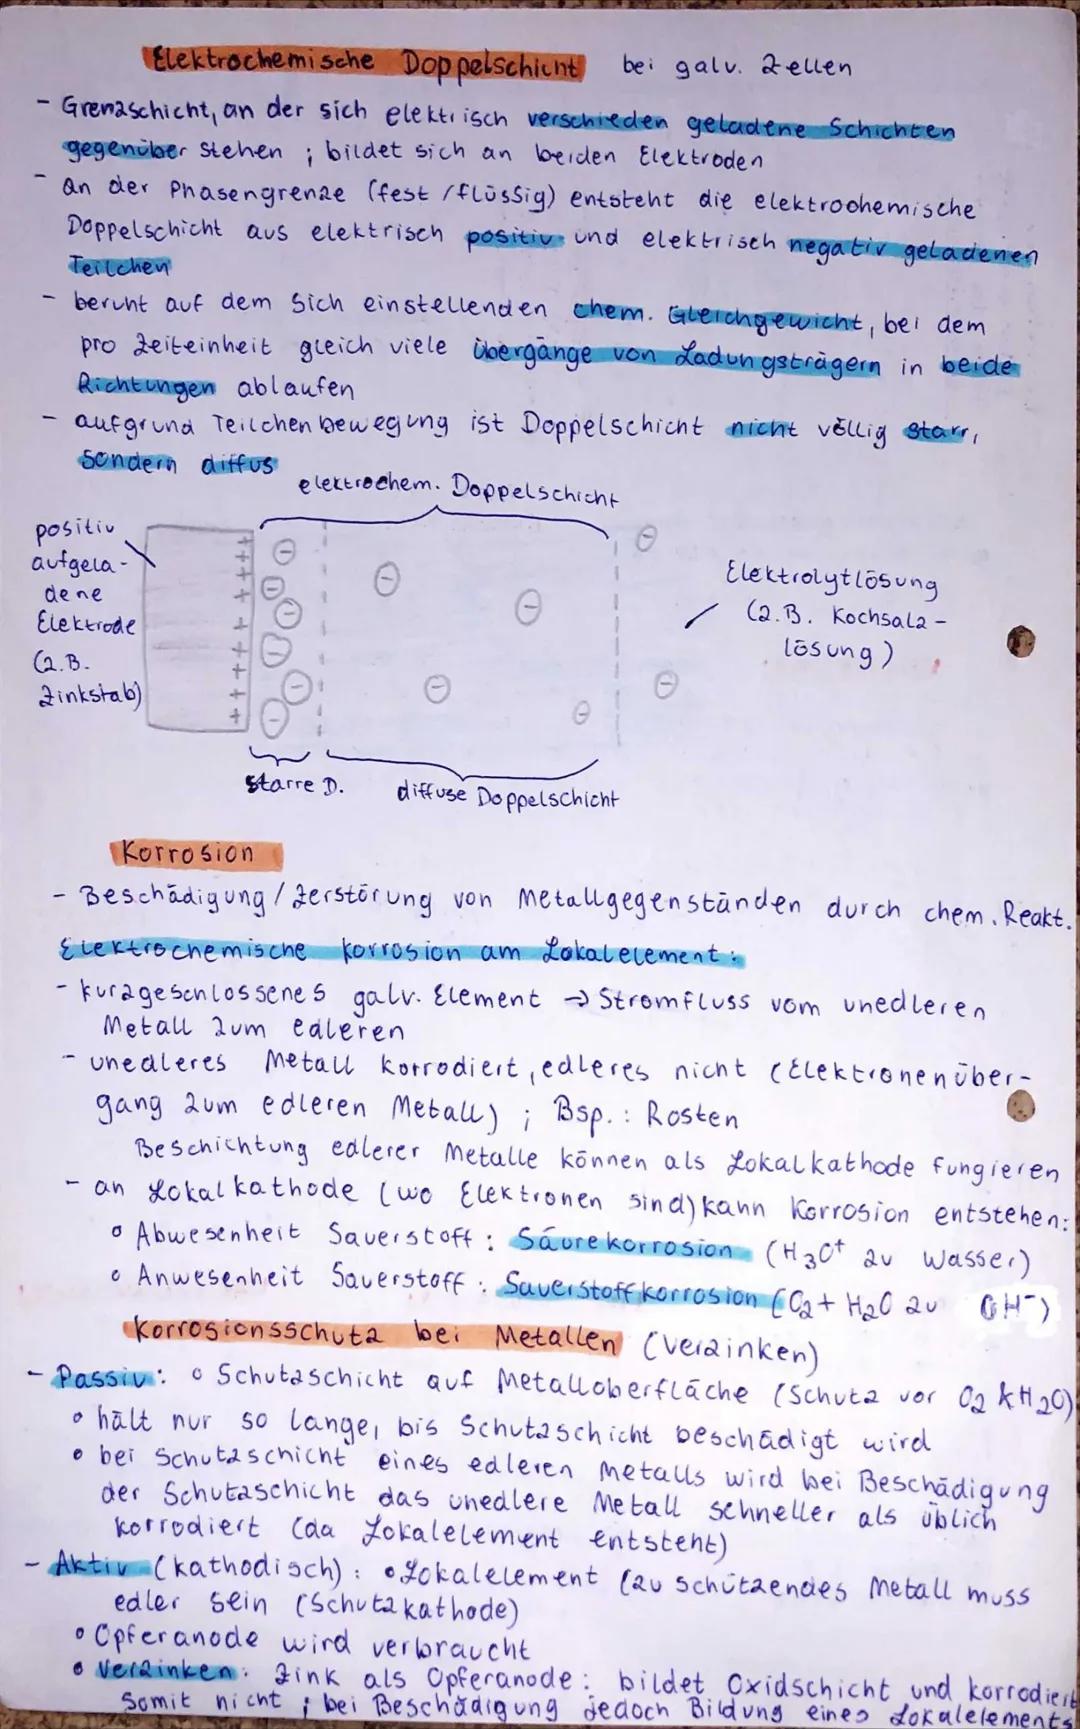 Elektrochemische Doppelschicht bei galv. Zellen
- Grenzschicht, an der sich elektrisch verschieden geladene Schichten
gegenüber stehen ; bildet sich an beiden Elektroden
- an der Phasengrenze (fest /flüssig) entsteht die elektrochemische
Doppelschicht aus elektrisch positiv und elektrisch negativ geladenen
Teilchen
- beruht auf dem sich einstellenden chem. Gleichgewicht, bei dem
pro Zeiteinheit gleich viele Übergänge von Ladungsträgern in beide
Richtungen ablaufen
- aufgrund Teilchenbewegung ist Doppelschicht nicht völlig starr,
sondern diffus
elektrochem. Doppelschicht
positiv
aufgela-
dene
Elektrode
(z.B.
Zinkstab)
Elektrolytlösung
(z.B. Kochsalz-
lösung)
starre D.
diffuse Doppelschicht
Korrosion
- Beschädigung / Zerstörung von Metallgegenständen durch chem. Reakt.
Elektrochemische Korrosion am Lokalelement:
- kurzgeschlossenes galv. Element → Stromfluss vom unedleren
Metall zum edleren
- unedleres Metall korrodiert, edleres nicht (Elektronenüber-
gang zum edleren Metall) ; Bsp.: Rosten
Beschichtung edlerer Metalle können als Lokalkathode fungieren
- an Lokalkathode (wo Elektronen sind) kann Korrosion entstehen:
o Abwesenheit Sauerstoff: Säurekorrosion (H3O+ zu Wasser)
o Anwesenheit Sauerstoff: Sauerstoffkorrosion (O2 + H2O zu OH-)
Korrosionsschutz bei Metallen (Verzinken)
- Passiv: o Schutzschicht auf Metalloberfläche (Schutz vor O2 & H2O)
o hält nur so lange, bis Schutzschicht beschädigt wird
o bei Schutzschicht eines edleren Metalls wird bei Beschädigung
der Schutzschicht das unedlere Metall schneller als üblich
korrodiert (da Lokalelement entsteht)
- Aktiv (kathodisch): o Lokalelement (zu schützendes Metall muss
edler sein (Schutzkathode)
o Opferanode wird verbraucht
o Verzinken: Zink als Opferanode: bildet Oxidschicht und korrodiert
somit nicht ; bei Beschädigung jedoch Bildung eines Lokalelements